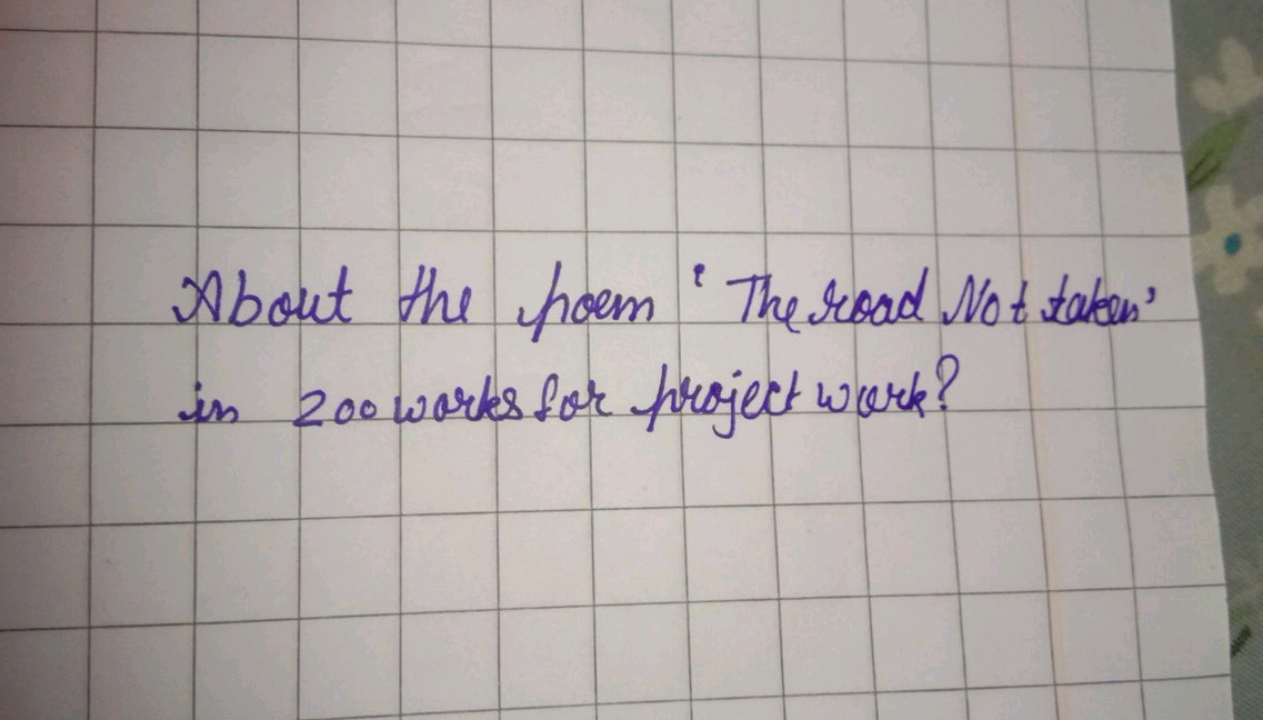 About the poem 'The road Not taken'
in 200 works for project work?